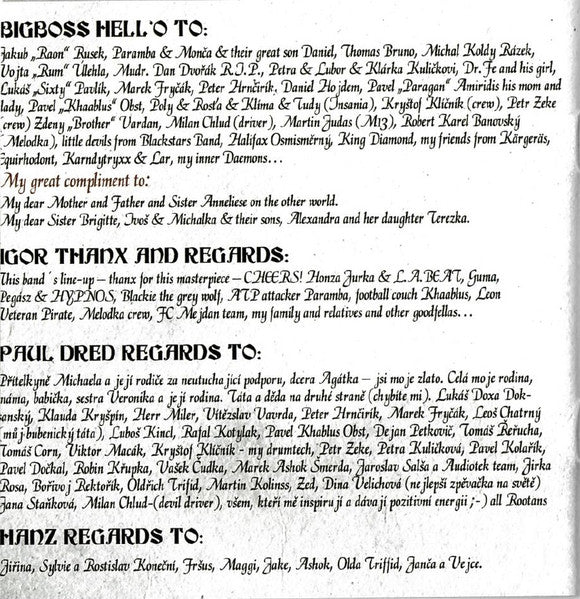 BIGBOSS HELL'O TO:
Jakub „Raon“ Rusek, Paramba & Monča & their great son Daniel, Thomas Bruno, Michal Koldy Rázek,
Vojta „Rum“ Ulehla, Mudr. Dan Dvořák R.I.P., Petra & Lubor & Klárka Kuličkovi, Dr. Fe and his girl,
Lukáš „Sixty“ Pavlík, Marek Fryčák, Peter Hrnčirik, Daniel Hojdem, Pavel „Paragan“ Amiridis his mom and
lady, Pavel „Khaablus“ Obst, Poly & Rosťa & Klíma & Tudy (Insania), Kryštof Klíčník (crew), Petr Zeke
(crew) Zdeny „Brother“ Vardan, Milan Chlud (driver), Martin Judas (M13), Robert Karel Banovský
(Melodka), little devils from Blackstars Band, Halifax Osmisměrný, King Diamond, my friends from Kärgeräs,
Equirhodont, Karndytryxx & Lar, my inner Daemons...
My great compliment to:
My dear Mother and Father and Sister Anneliese on the other world.
My dear Sister Brigitte, Ivoš & Michalka & their sons, Alexandra and her daughter Terezka.
IGOR THANX AND REGARDS:
This band´s line-up – thanx for this masterpiece – CHEERS! Honza Jurka & L.A.BEAT, Guma,
Pegász & HYPNOS, Blackie the grey wolf, ATP attacker Paramba, football couch Khaablus, Leon
Veteran Pirate, Melodka crew, FC Mejdan team, my family and relatives and other goodfellas...
PAUL DRED REGARDS TO:
Přítelkyně Michaela a její rodiče za neutuchající podporu, dcera Agátka – jsi moje zlato. Celá moje rodina,
máma, babička, sestra Veronika a její rodina. Táta a děda na druhé straně (chybíte mi). Lukáš Doxa Dok-
sanský, Klauda Kryšpín, Herr Miler, Vítězslav Vavrda, Peter Hrnčirik, Marek Fryčák, Leoš Chatrný
(můj bubenický táta), Luboš Kincl, Rafal Kotylak, Pavel Khablus Obst, Dejan Petkovič, Tomáš Řeřucha,
Tomáš Corn, Viktor Macák, Kryštof Klíčník - my drumtech, Petr Zeke, Petra Kuličková, Pavel Kolařík,
Pavel Dočkal, Robin Křupka, Vašek Čudka, Marek Ashok Šmerda, Jaroslav Salša a Audiotek team, Jirka
Rosa, Bořivoj Rektořík, Oldřich Trifid, Martin Kolinss, Zed, Dina Velichová (nejlepší zpěvačka na světě)
Jana Staňková, Milan Chlud-(devil driver), všem, kteří mě inspirují a dávají pozitivní energii ;-) all Rootans
HANZ REGARDS TO:
Jiřina, Sylvie a Rostislav Koneční, Fršus, Maggi, Jake, Ashok, Olda Triffid, Janča a Vejce.